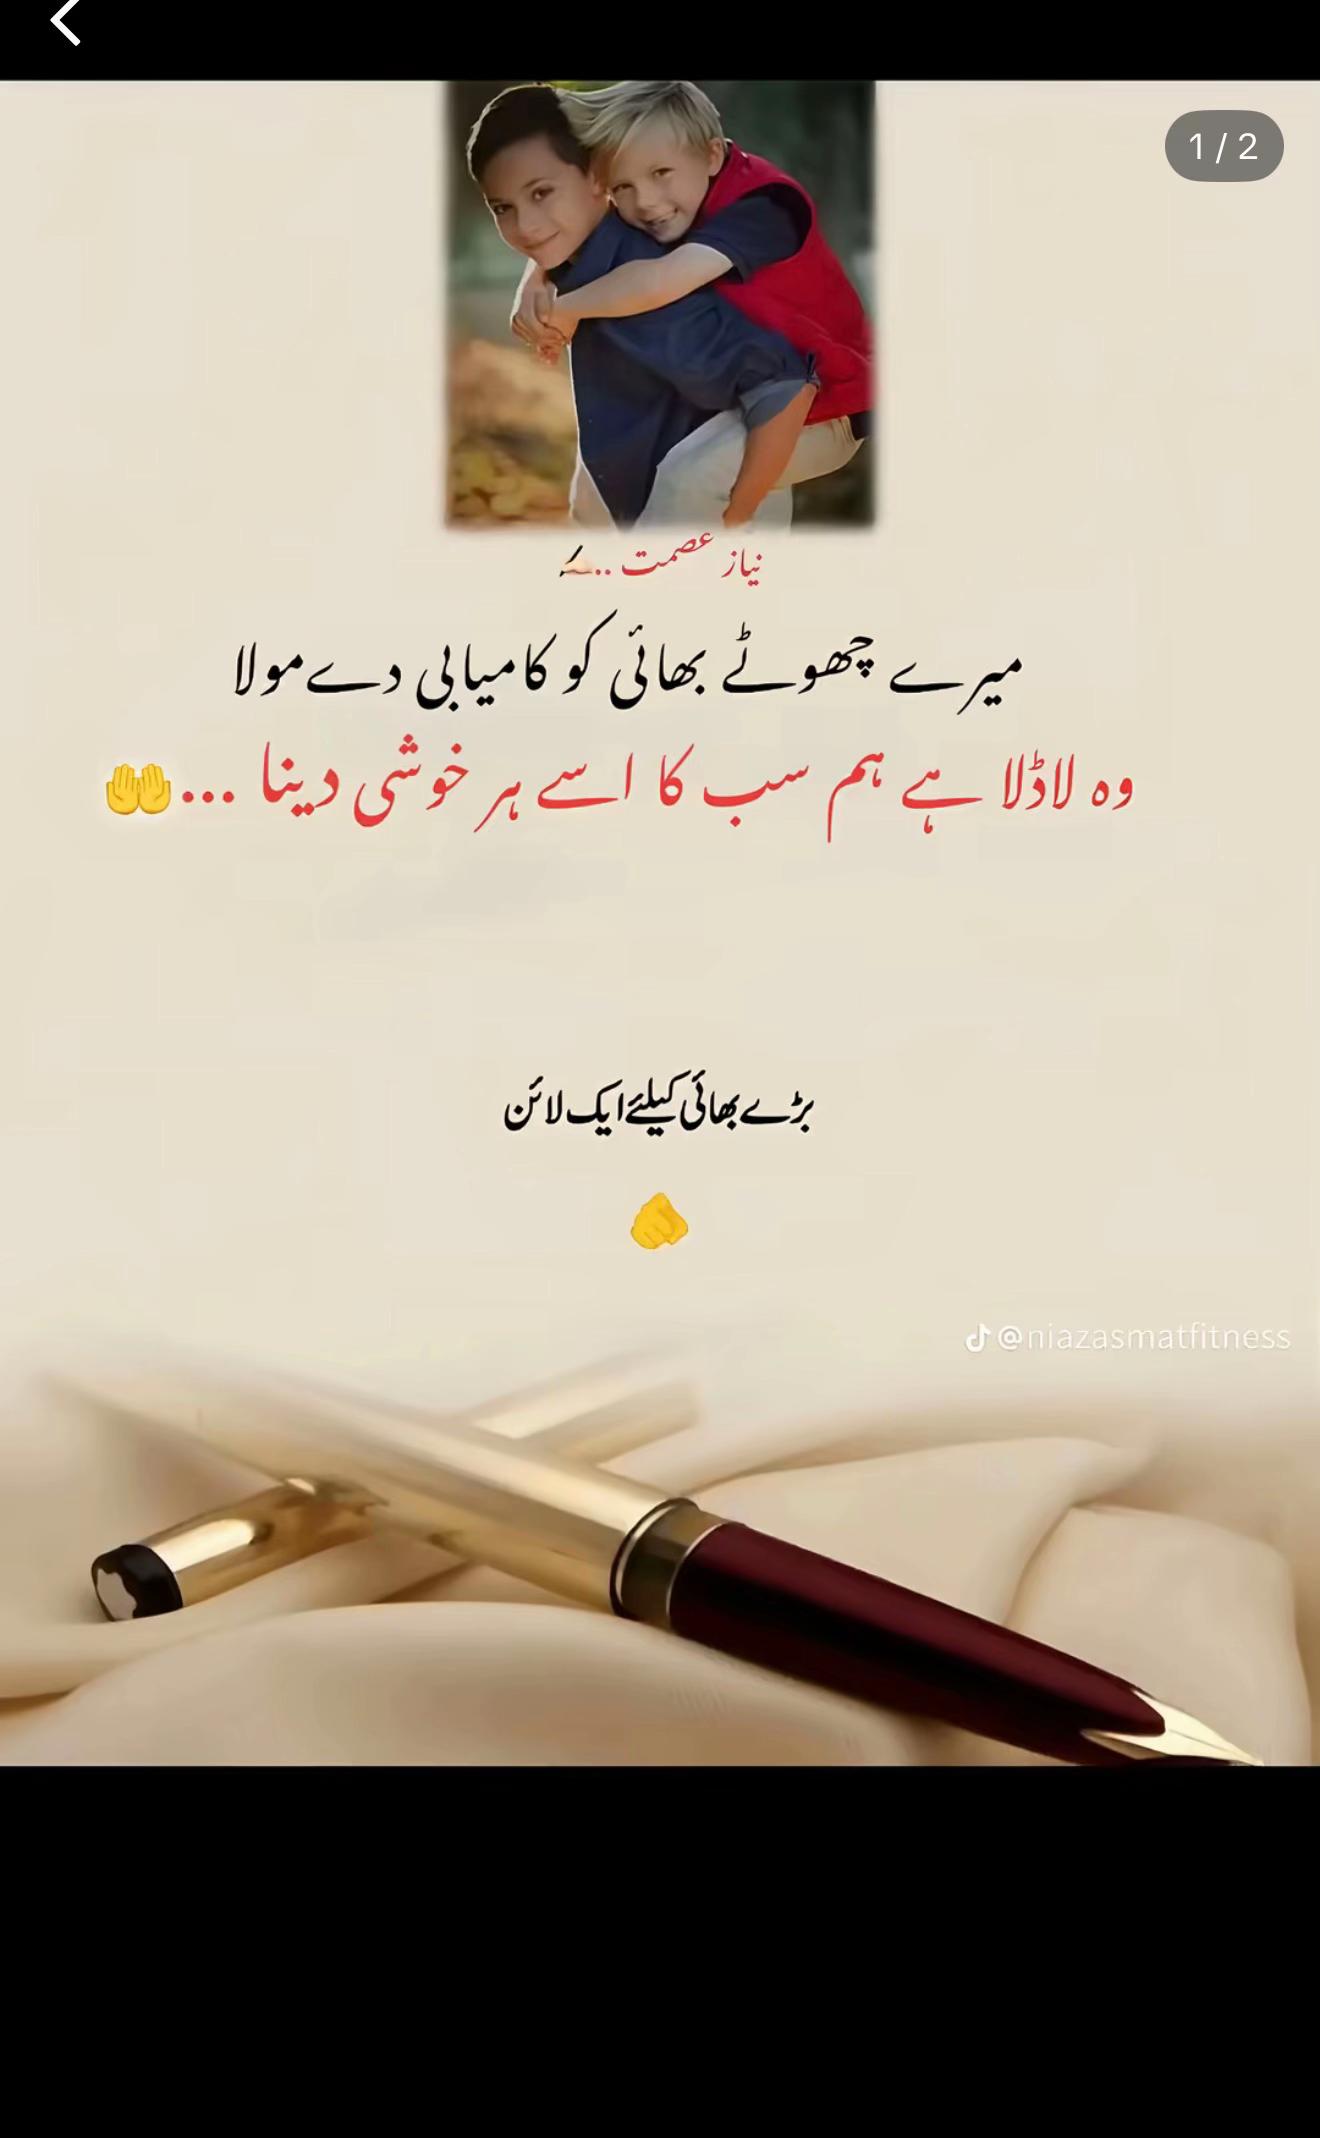 1 / 2
نیاز عصمت ..✍
میرے چھوٹے بھائی کو کامیابی دے مولا
وہ لاڈلا ہے ہم سب کا اسے ہر خوشی دینا ...🤲
بڑے بھائی کیلئے ایک لائن
🫵
@niazasmatfitness